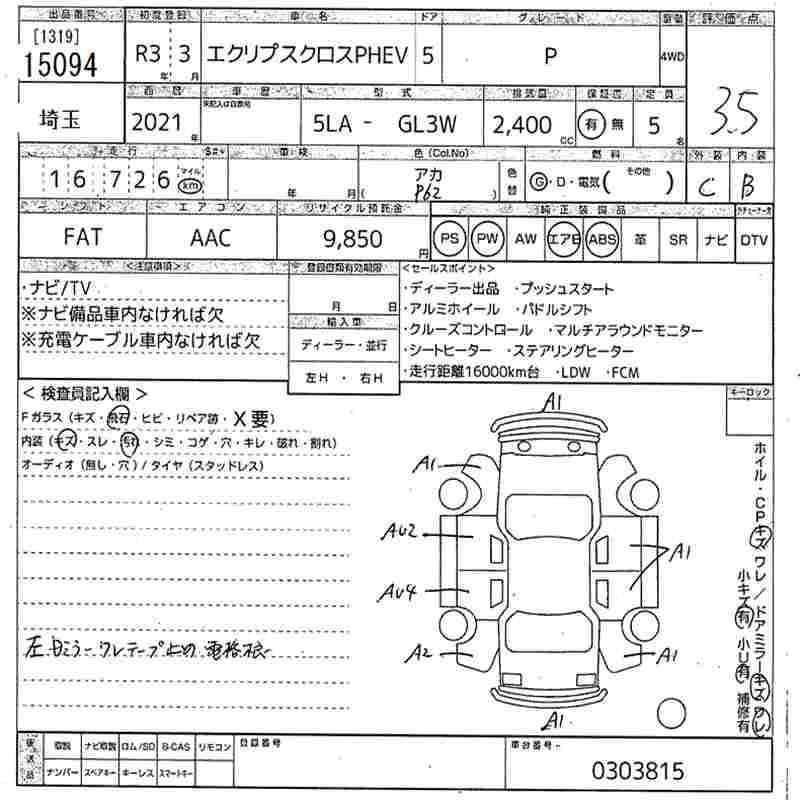 出品番号 初度登録 車名 ドア グレード 駆動 評価点
[1319]
15094 R3 年 3 月 エクリプスクロスPHEV 5 P 4WD 3.5
西暦 車歴 型式 排気量 保証書 定員
埼玉 2021 年 未記入は自家用 5LA - GL3W 2,400 CC 有 無 5 名
走行 車検 色(Col.No) 燃料 外装 内装
16726 マイル km 年 月 アカ P62 色替 G・D・電気( その他 ) C B
シフト エアコン リサイクル預託金 純正装備品
FAT AAC 9,850 円 PS PW AW エアB ABS 革 SR ナビ DTV
<注意事項> 登録書類有効期限 <セールスポイント>
・ナビ/TV
※ナビ備品車内なければ欠
※充電ケーブル車内なければ欠
月 日
輸入車
ディーラー・並行
左H ・ 右H
・ディーラー出品 ・プッシュスタート
・アルミホイール ・パドルシフト
・クルーズコントロール ・マルチアラウンドモニター
・シートヒーター ・ステアリングヒーター
・走行距離16000km台 ・LDW ・FCM
キーロック
<検査員記入欄>
Fガラス(キズ・飛石・ヒビ・リペア跡・X要)
内装(キズ・スレ・汚れ・シミ・コゲ・穴・キレ・破れ・割れ)
オーディオ(無し・穴)/タイヤ(スタッドレス)
A1
A1
AU2
A1
AU4
A2
A1
A1
ホイル・CPキズ ワレ/ドアミラーキズ ワレ
小キズ有 小U有 補修有
左ドミラー ワレテープ止め 電格根
後送品 取説 ナビ取説 ロム/SD B-CAS リモコン 登録番号 車台番号-
ナンバー スペアキー キーレス スマートキー 0303815